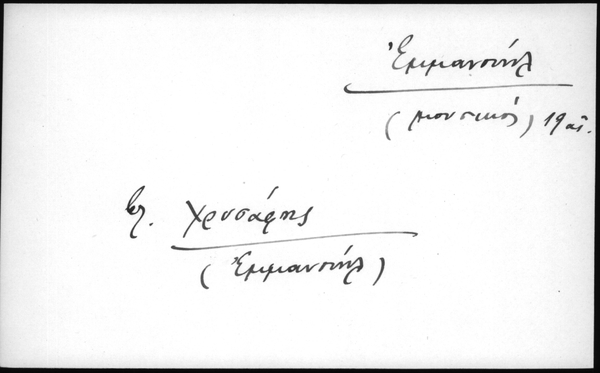 Ἐμμανουήλ
(μουσικός) 19 αἰ.
βλ. Χρυσάφης
(Ἐμμανουήλ)